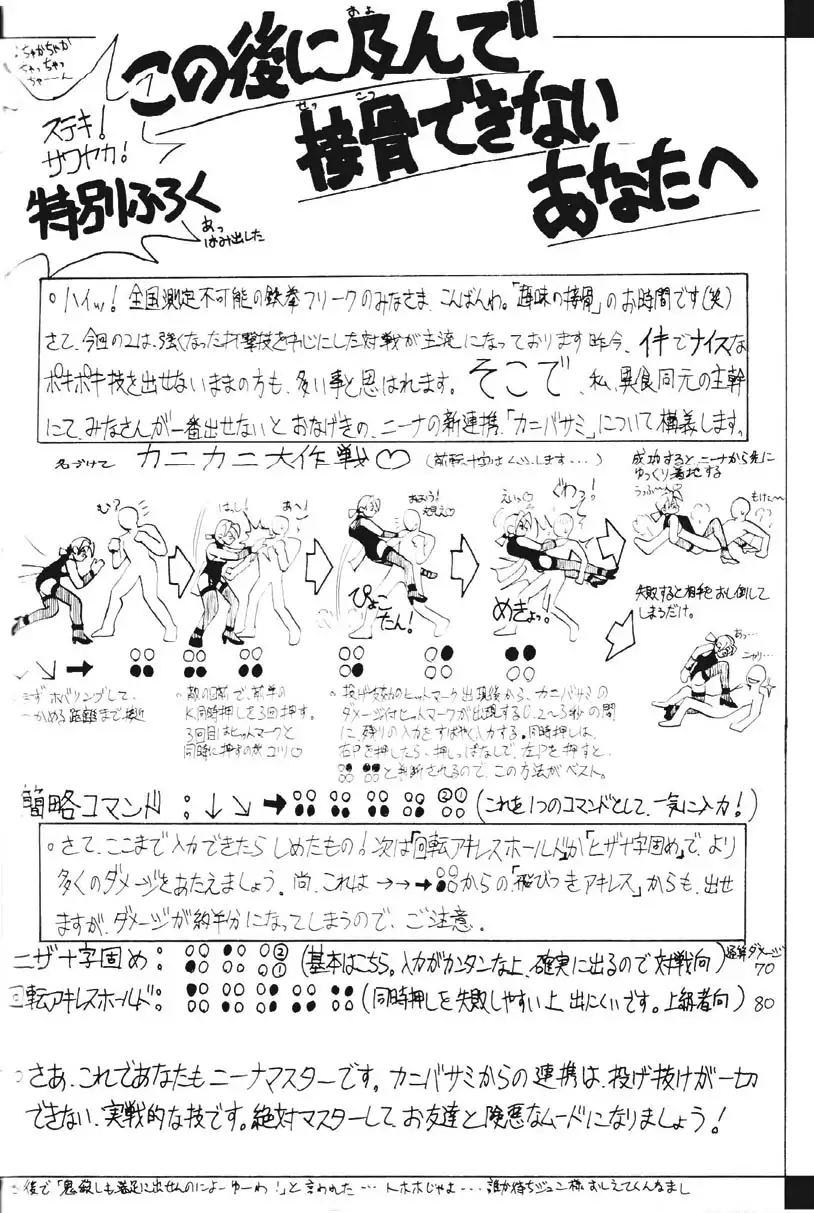 ちゃかちゃか
ちゃっちゃっ
ちゃーーん
この後に及んで
およ
接骨できない
せっ こつ
あなたへ
ステキ!
サワヤカ!
特別ふろく
あっ
はみ出した
○ハイッ! 全国測定不可能の鉄拳フリークのみなさま、こんばんわ。「趣味の接骨」のお時間です(笑)
さて、今回の2は、強くなった打撃技を中心にした対戦が主流になっております昨今、イキでナイスな
ポキポキ技を出せないままの方も、多い事と思われます。そこで、私、異食同元の主幹
にて、みなさんが一番出せないとおなげきの、ニーナの新連携、「カニバサミ」について構義します。
名づけて カニカニ大作戦♡
成功すると、ニーナから先に
ゆっくり着地する
うっふーん
もけた〜
む?
はし!
あ〜!
えいっ♡
ぐわっ!
ぴょこ
たん!
めきょっ。
失敗すると相手をおし倒して
しまうだけ。
あっ…
ニヤリ…
↓ ↘ ➡
○○ ○○ ○○
●● ●● ●●
○○ ○○ ●●
●● ●● ○○
まずホバリングして、
つかめる距離まで接近
○敵の目前で、前半の
K同時押しを3回押す。
3回目はヒットマークと
同時に押すのがコツ♡
○投げ成功のヒットマーク出現後から、カニバサミの
ダメージ付ヒットマークが出現する0.2〜3秒の間
に、残りの入力をすばやく入力する。同時押しは、
右Pを押したら、押しっぱなしで、左Pを押すと、
●● ●●と判断されるので、この方法がベスト。
簡略コマンド:↓ ↘ ➡ ○○ ○○ ○○ ○○ ○○ ②① (これを1つのコマンドとして、一気に入力!)
●● ●● ●● ●● ●● ○○
○さて、ここまで入力できたらしめたもの!次は「回転アキレスホールド」か「ヒザ十字固め」で、より
多くのダメージをあたえましょう。尚、これは→→➡からの「飛びつきアキレス」からも、出せ
ますが、ダメージが約半分になってしまうので、ご注意。
ニザ十字固め: (基本はこちら。入力がカンタンな上、確実に出るので対戦向)
ダメージ
70
回転アキレスホールド: (同時押しを失敗しやすい上、出にくいです。上級者向) 80
○さあ、これであなたもニーナマスターです。カニバサミからの連携は、投げ抜けが一切
できない、実戦的な技です。絶対マスターして、お友達と険悪なムードになりましょう!
後で「鬼殺しも満足に出せんのによーゆーわ!」と言われた…トホホじゃよ…誰か待ちジュン様おしえてくんなまし